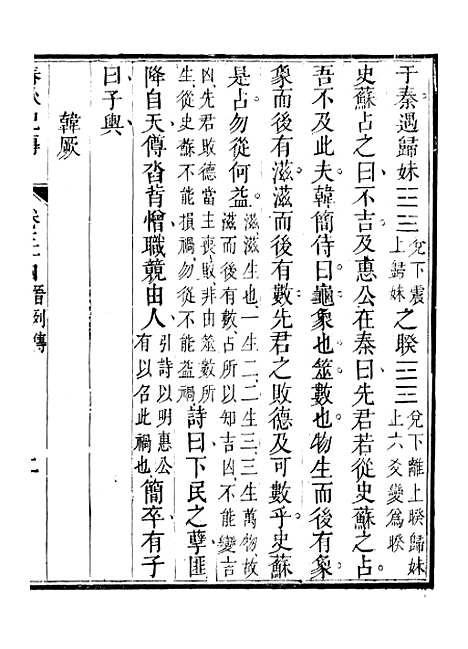 于秦遇歸妹䷵兌下震上歸妹之睽䷥兌下離上睽歸妹上六爻變爲睽
史蘇占之曰不吉及惠公在秦曰先君若從史蘇之占
吾不及此夫韓簡侍曰龜象也筮數也物生而後有象
象而後有滋滋而後有數先君之敗德及可數乎史蘇
是占勿從何益滋滋生也一生二二生三三生萬物故滋而後有數占所以知吉凶不能變吉
凶先君敗德當主喪敗非由筮數所生從史蘇不能損禍勿從不能益禍詩曰下民之孽匪
降自天僔沓背憎職競由人引詩以明惠公有以名此禍也簡卒有子
曰子輿
韓厥
春秋紀傳
晉列傳